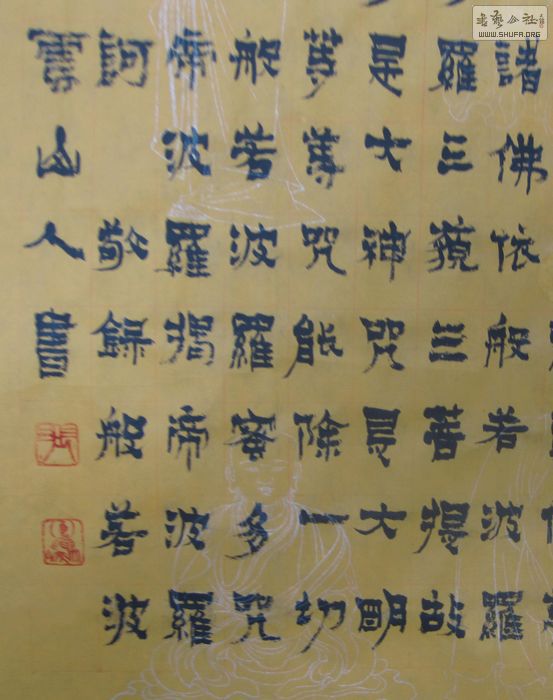 諸佛依般若波羅
羅三藐三菩提故
是大神咒是大明
等等咒能除一切
般若波羅蜜多咒
帝波羅揭帝波羅
訶 敬錄般若波
雲山人書
書藝公社
WWW.SHUFA.ORG